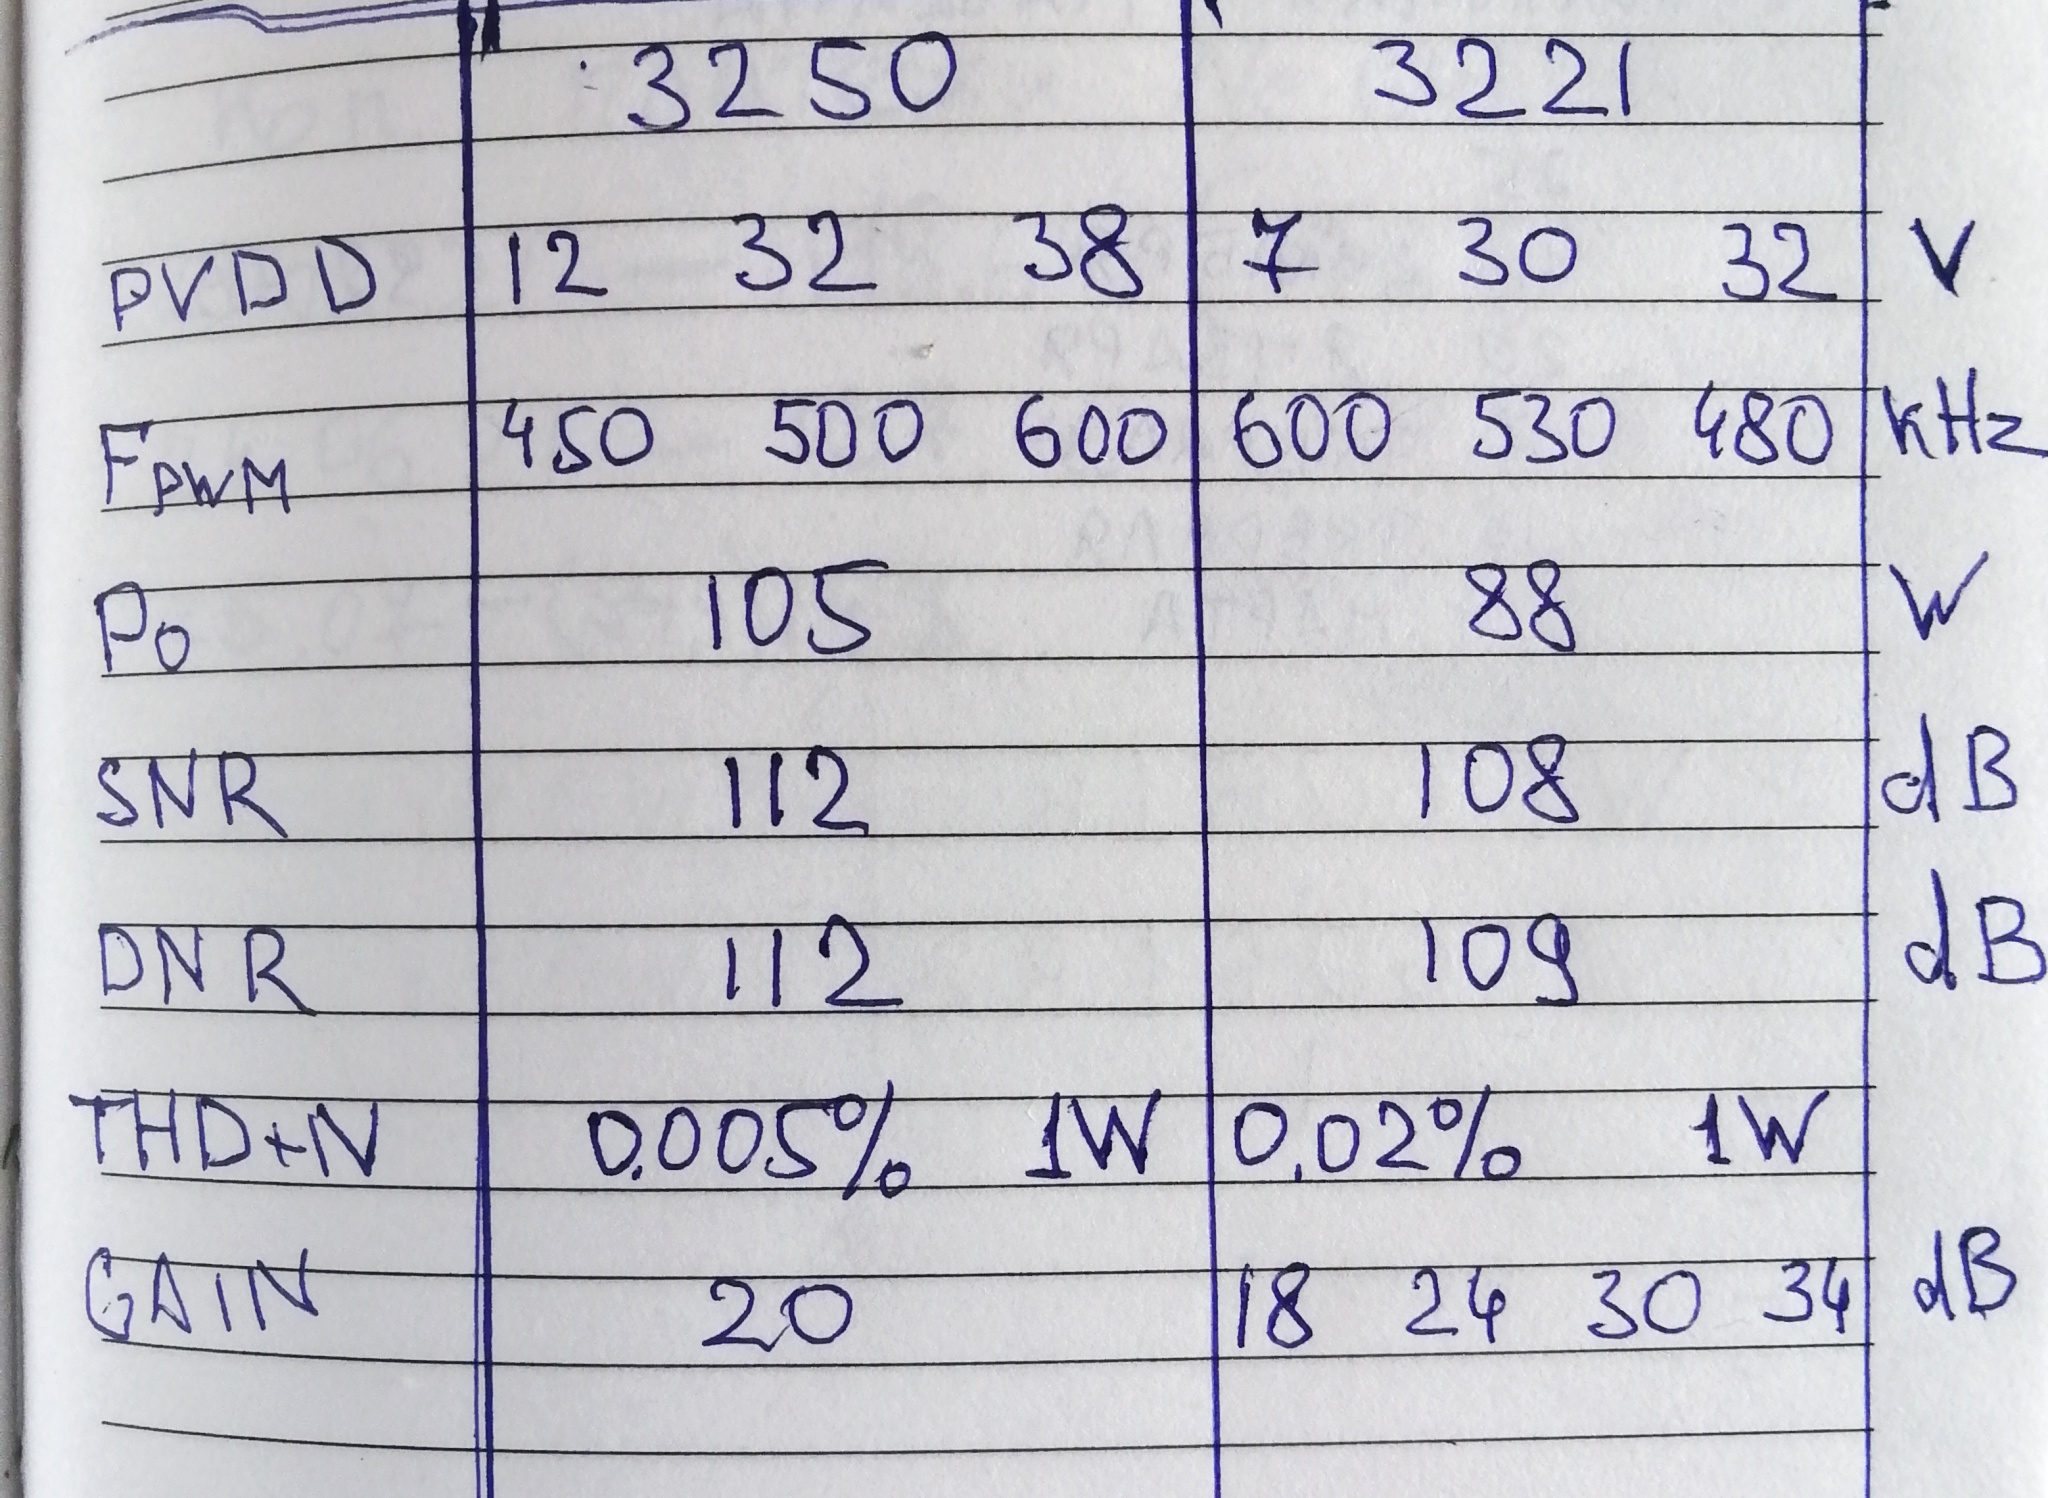 3250 3221
PVDD 12 32 38 7 30 32 V
FPWM 450 500 600 600 530 480 kHz
Po 105 88 W
SNR 112 108 dB
DNR 112 109 dB
THD+N 0.005% 1W 0.02% 1W
GAIN 20 18 24 30 34 dB